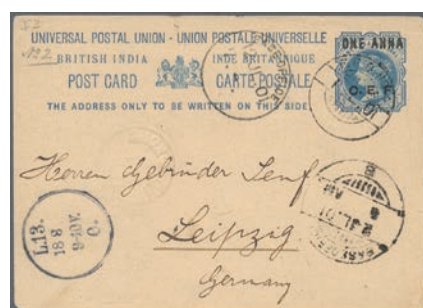 No 2
UNIVERSAL POSTAL UNION - UNION POSTALE UNIVERSELLE
BRITISH INDIA INDE BRITANNIQUE
POST CARD CARTE POSTALE
THE ADDRESS ONLY TO BE WRITTEN ON THIS SIDE
ONE ANNA
C.E.F.
Herren Gebrüder Senf
Leipzig
Germany
L.13.
18 8
9-10V.
O.
B